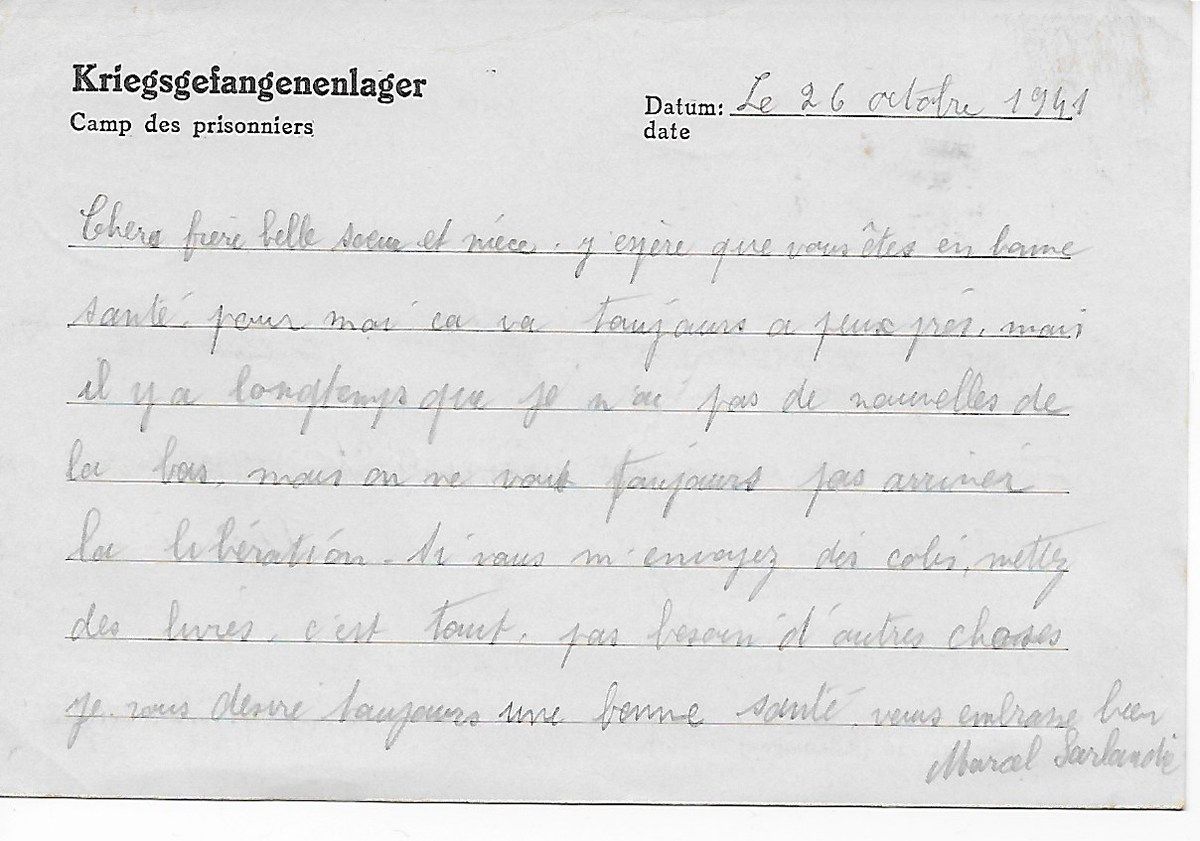 Kriegsgefangenenlager
Camp des prisonniers
Datum: Le 26 octobre 1941
date
Chers frère belle soeur et nièce. j'espère que vous êtes en bonne
santé, pour moi ca va toujours a peux près, mais
il y a longtemps que je n'ai pas de nouvelles de
la bas, mais on ne voit toujours pas arriver
la libération. Si vous m'envoyez des colis, mettez
des livres, c'est tout, pas besoin d'autres choses
je vous désire toujours une bonne santé, vous embrasse bien
Marcel Sarlande